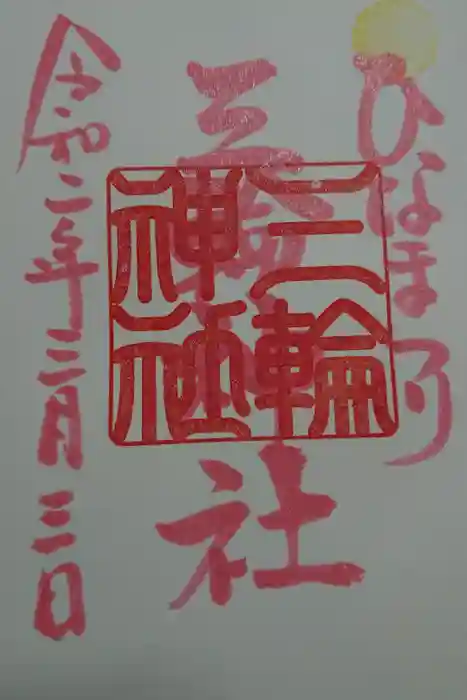 ひなまつり
三輪神社
三輪
神社
令和二年三月三日